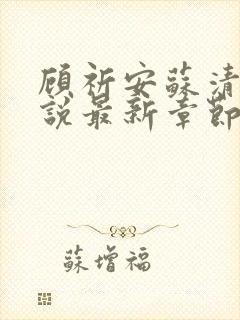 顾祈安蘇清
説最新章節
蘇增福